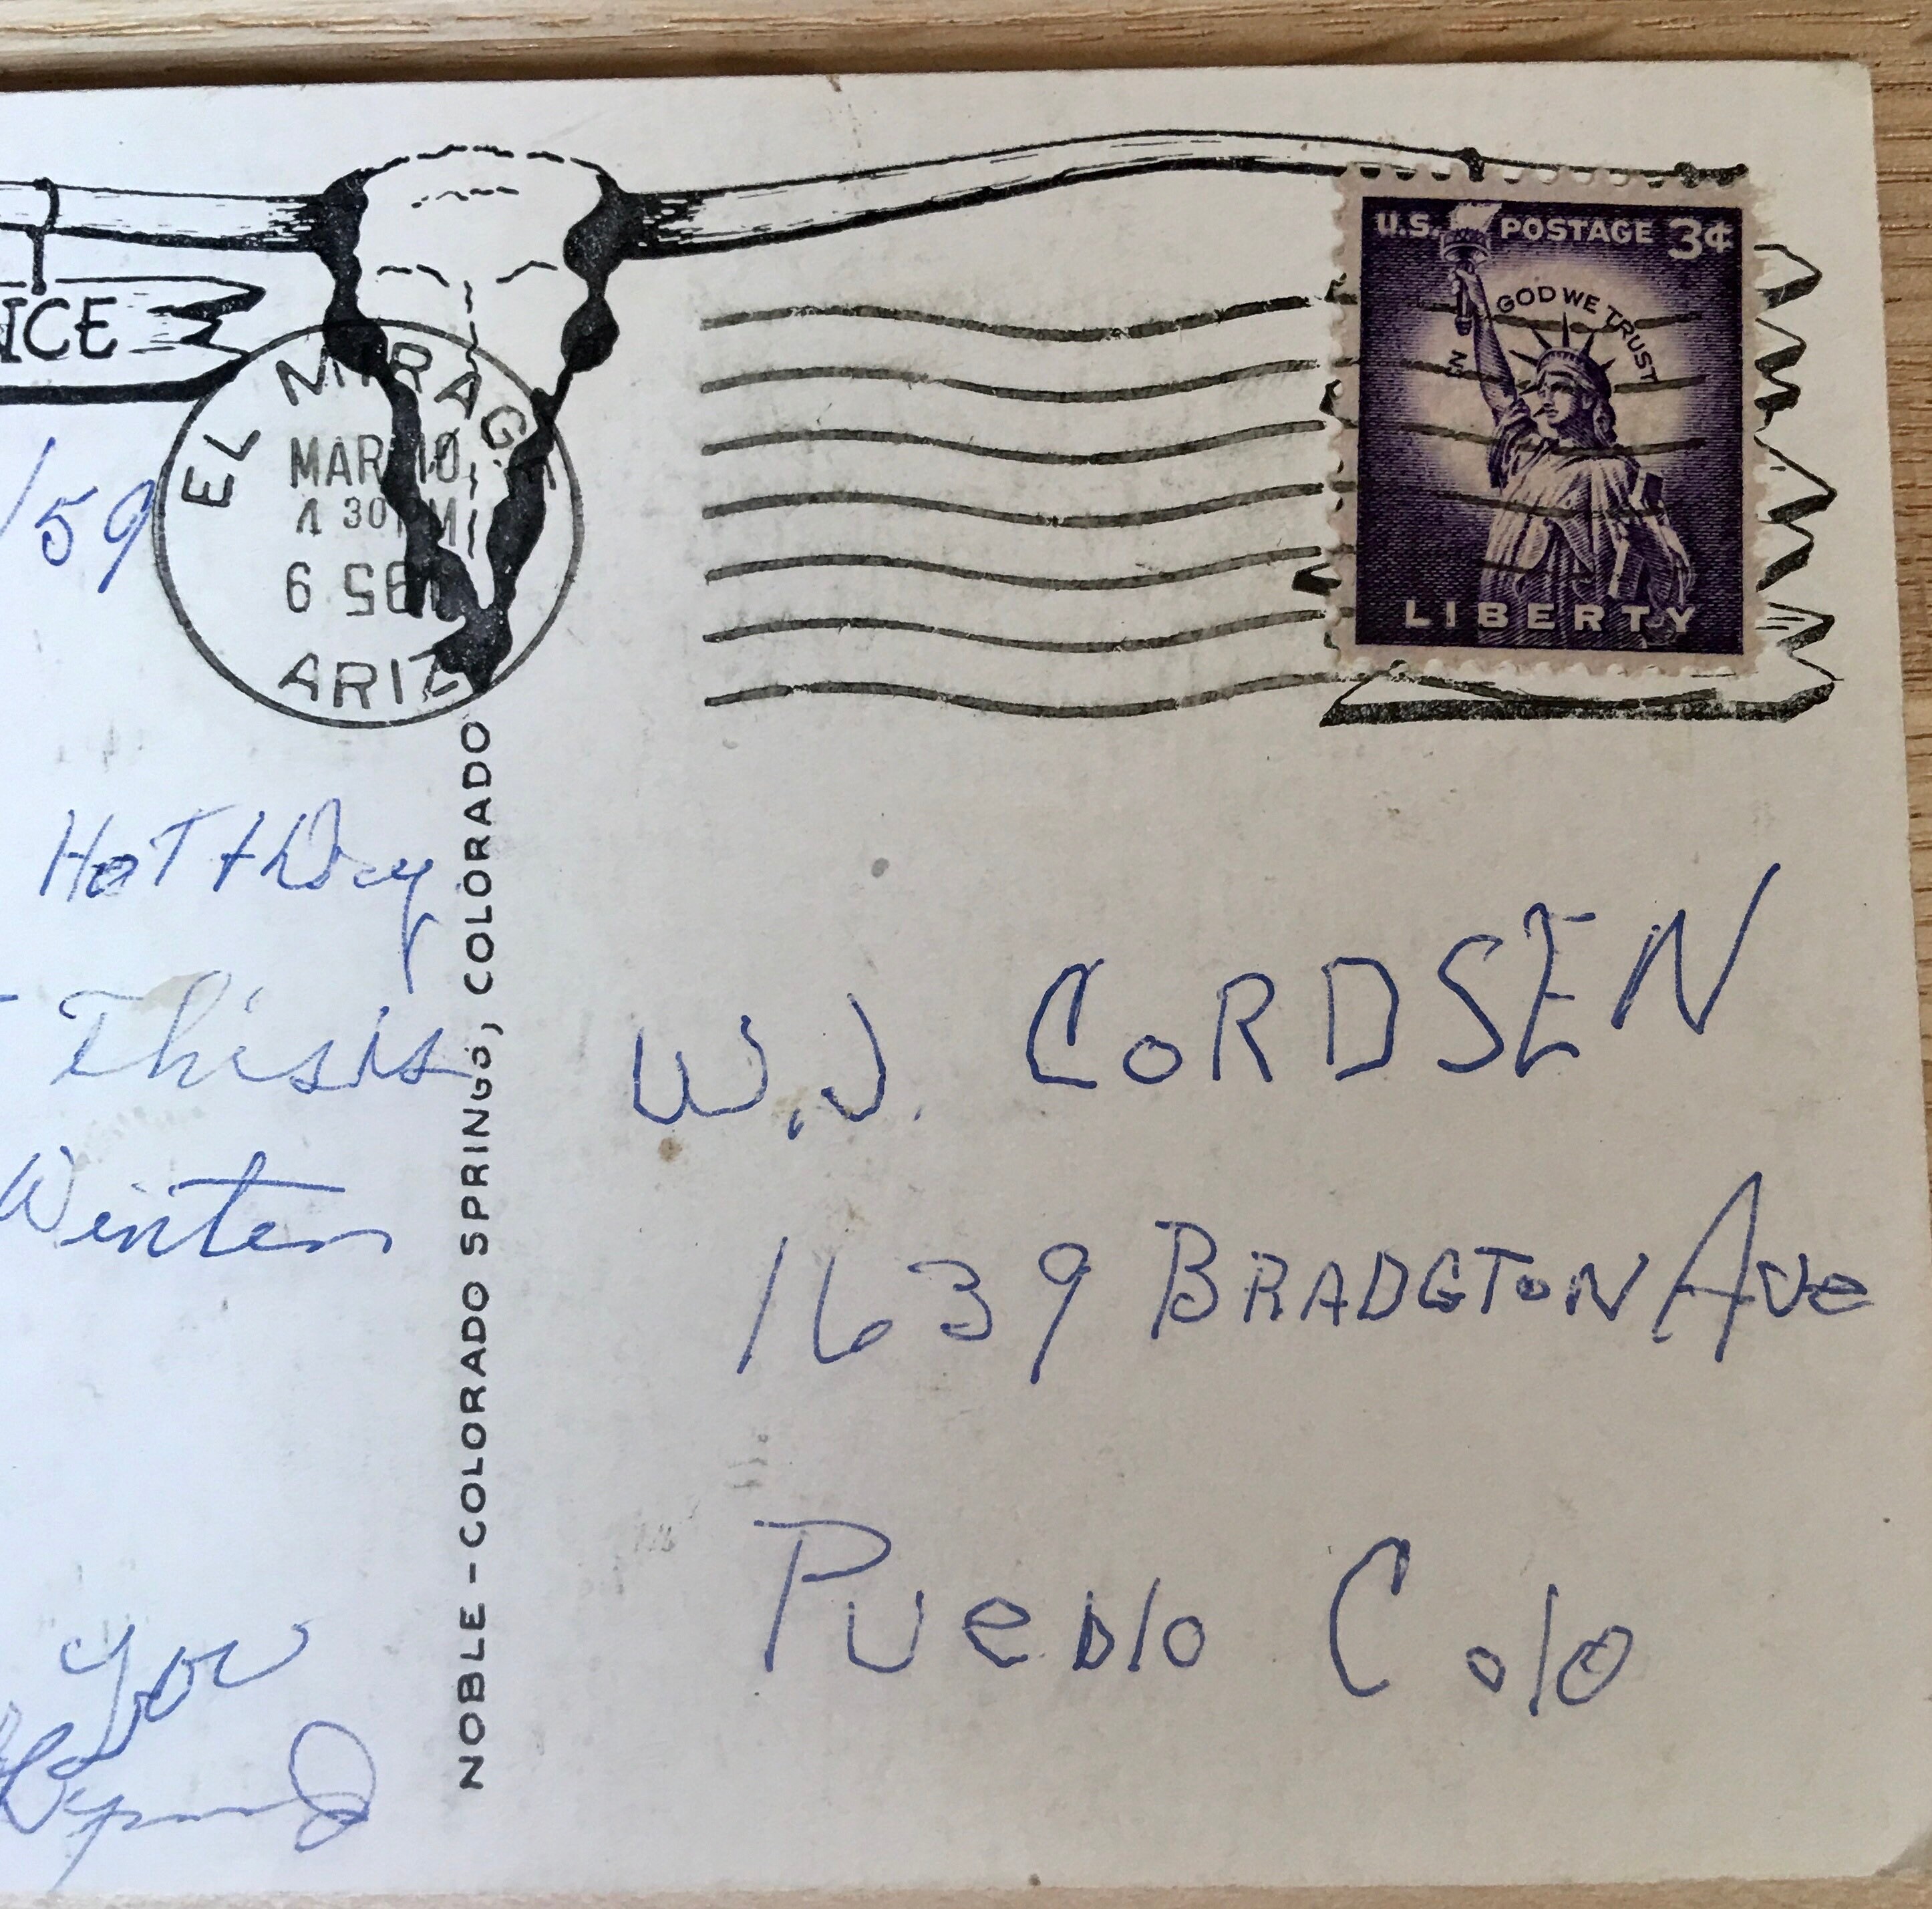 ICE
EL MIRAGE
MAR 10
4 30 PM
1959
ARIZ
U.S. POSTAGE 3¢
IN GOD WE TRUST
LIBERTY
/59
Hot &
This is
Winter
You
NOBLE – COLORADO SPRINGS, COLORADO
W.J. CORDSEN
1639 BRADGTON Ave
Pueblo Colo